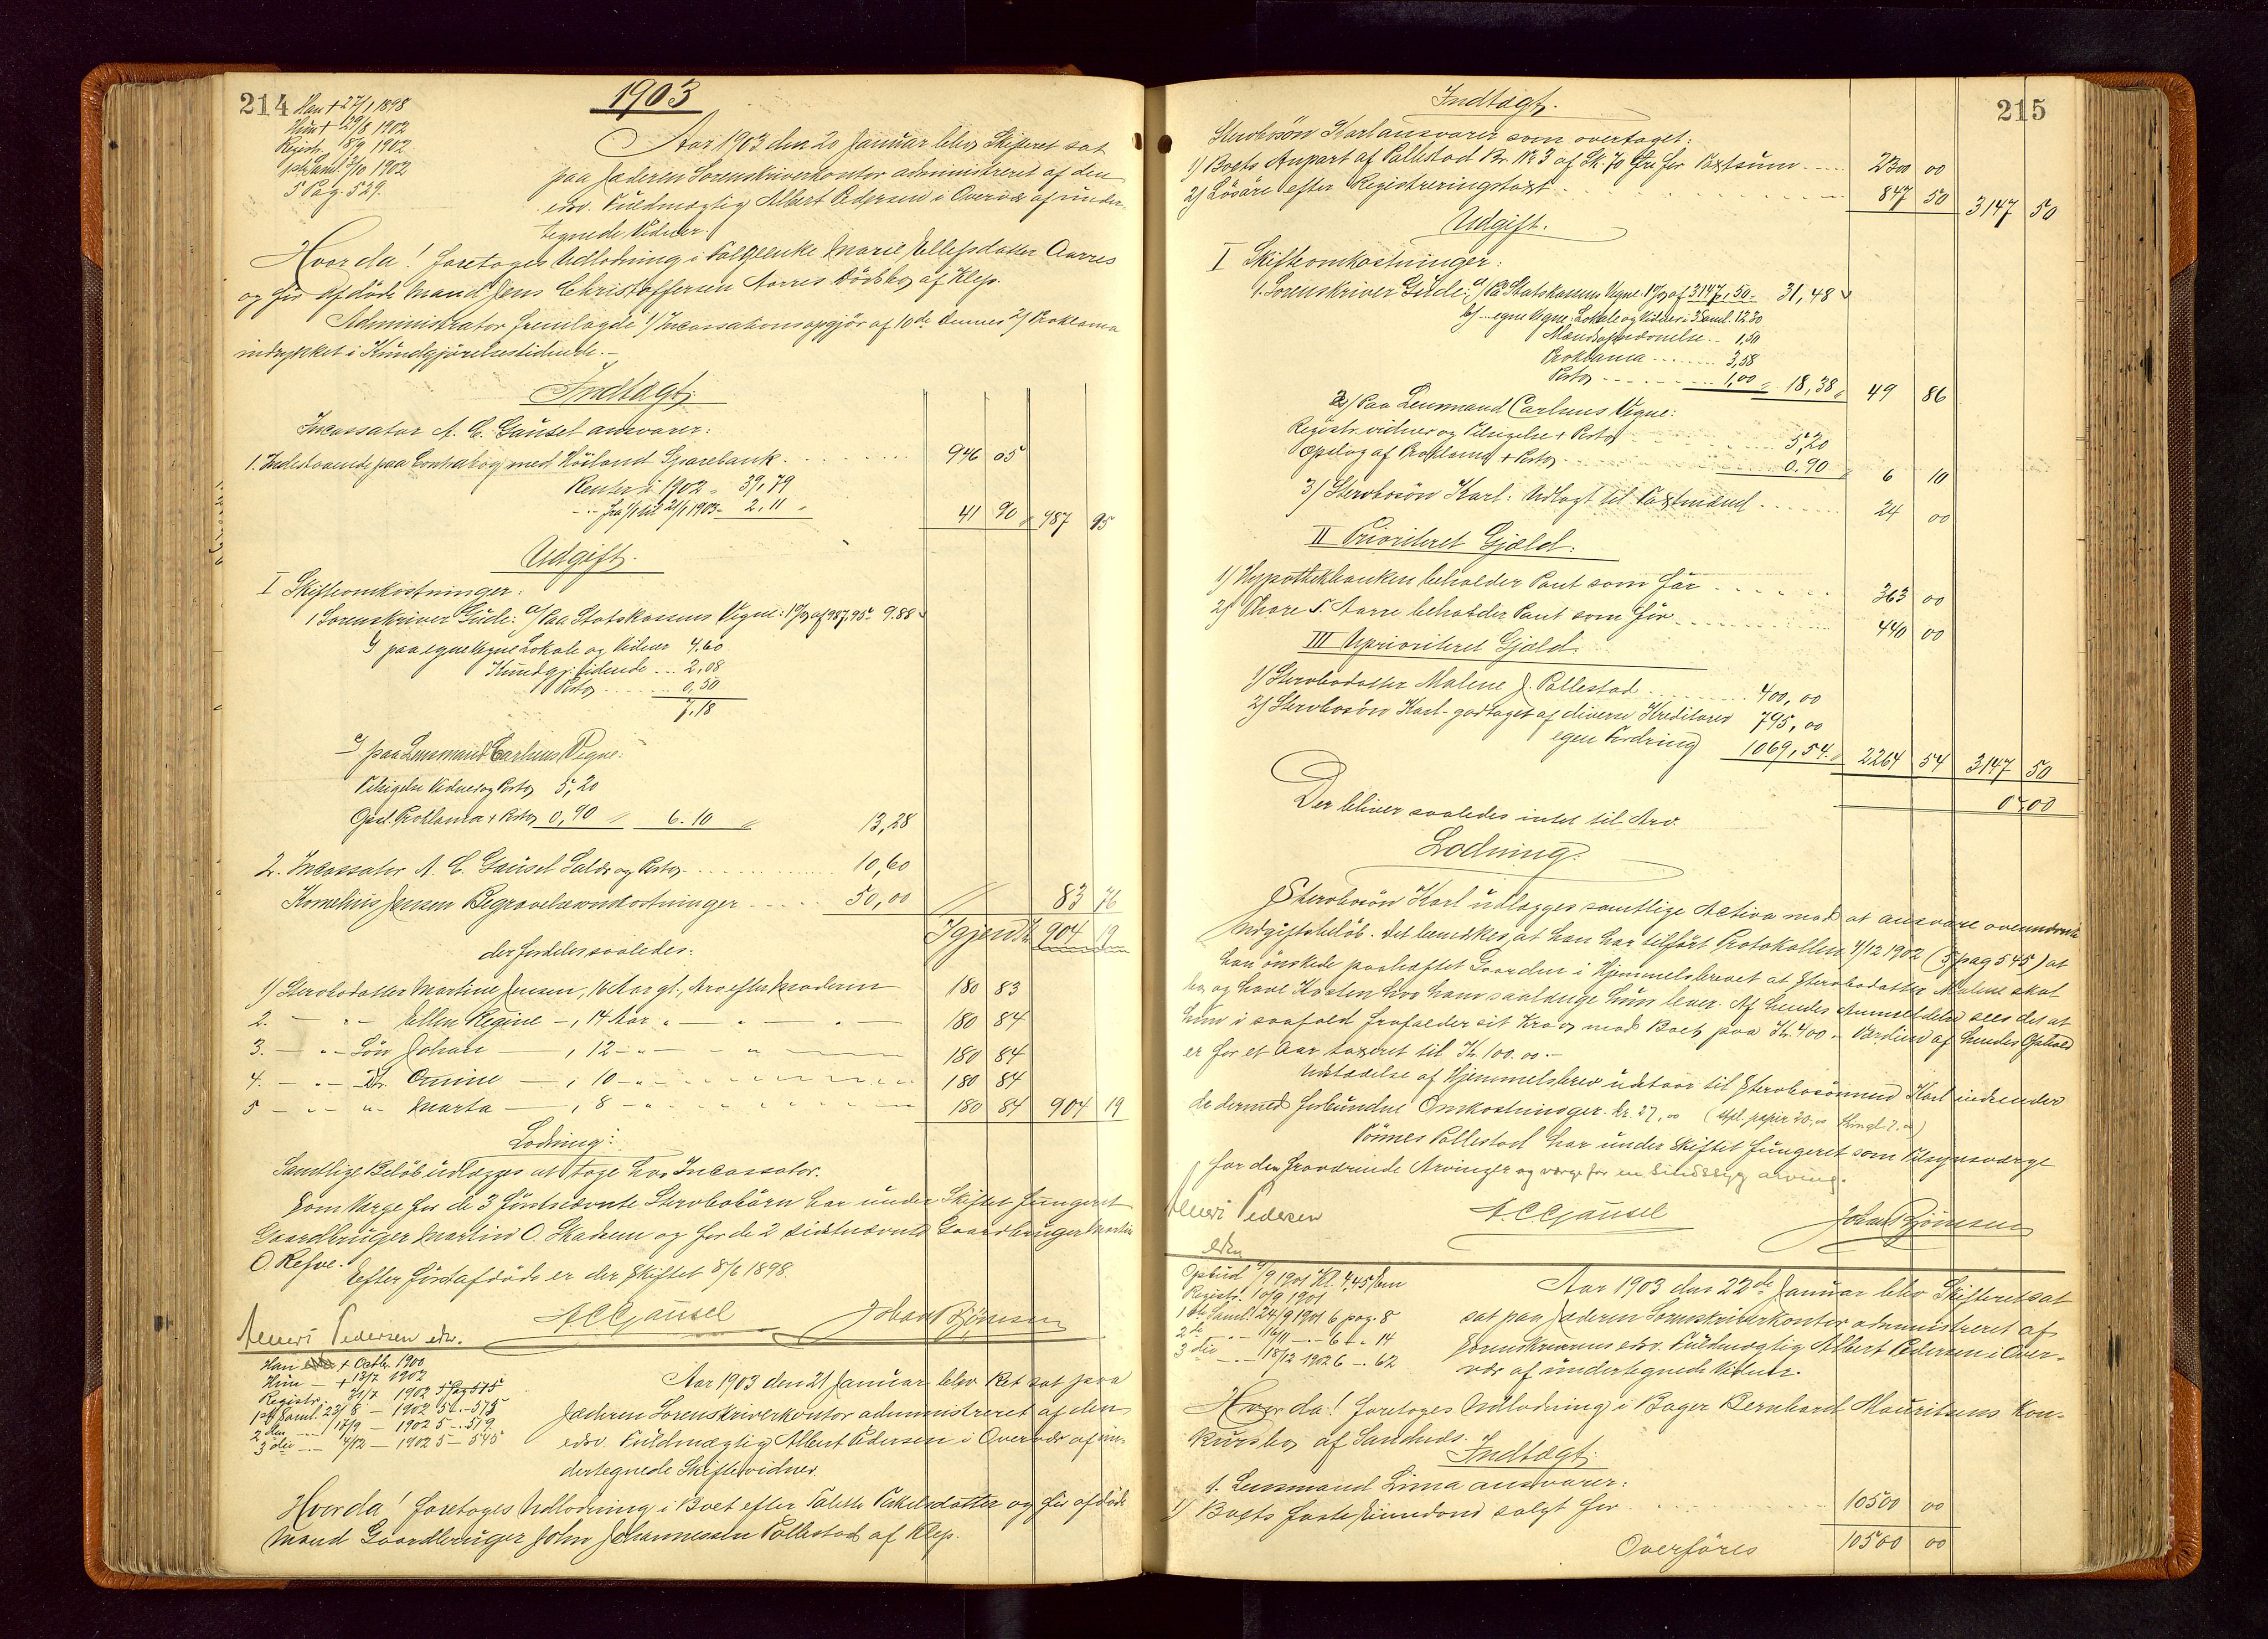 214
Han † 27/1 1898
Hun † 29/8 1902
Registr. 18/9 1902
1ste Saml. 3/10 1902
5 Pag. 529.
1903
Aar 1903 den 20 Januar blev Skifteret sat
paa Jæderen Sorenskriverkontor administreret af den
edsv. Fuldmægtig Albert Pedersen i Overvær af under-
tegnede Vidner.
Hvorda! foretoges Udlodning i Enke Marie Ellefsdatter Aarres
og før afdøde Mand Jens Christoffersen Aarres Dødsbo af Klep.
Administrator fremlagde 1/ Incassationsopgjør af 10de dennes 2/ Proklama
indrykket i Kundgjørelsestidende.-
Indtægt.
Incassator A. C. Gausel ansvarer:
1. Indestaaende paa Contrabog med Høiland Sparebank 946 05
Renter i 1902 - 39,79
- fra 1/1 til 21/1 1903 - 2,11 41 90 987 95
Udgift.
I Skifteomkostninger:
1 Sorenskriver Gude: a/ Paa Statskassens Vegne: 1% af 987,95 9.88
b/ paa egne Vegne Lokale og Vidner 4,60
Kundgj. tidende 2,08
Porto 0,50
7,18
c/ paa Lensmand Carlsens Vegne:
Tilsigelse Vidner og Porto 5,20
Opsl. Proklama + Porto 0,90 6.10 13,28
2. Incassator A. C. Gausel Salær og Porto 10,60
Kornelius Jensen Begravelsesomkostninger 50,00 83 76
Igjen Kr. 904 19
der fordeles saaledes:
1) Sterbodatter Martine Jensen, 16 Aar gl., Arv efter Moderen 180 83
2. - " - Ellen Regine -, 14 Aar " - " - " - 180 84
3. - " - Søn Johan -, 12 - " - " - 180 84
4. - " - Dtr. Omine -, 10 - " - 180 84
5 - " - " - Marta -, 8 - " - 180 84 904 19
Lodning:
Samtlige Beløb udlægges at tage hos Incassator.
Som Værge for de 3 førstnævnte Sterbobørn har under Skiftet fungeret
Gaardbruger Martin O. Skadem og for de 2 sidstnævnte Gaardbruger Martin
O. Refve.
Efter førstafdøde er der skiftet 8/6 1898.
Albert Pedersen edsv. A. C. Gausel Johan Bjørnsen
Han † Octbr. 1900
Hun - † 13/7 1902
Registr. 31/7 1902 5 Pag 575
1ste Saml. 23/8 - 1902 5 - 575
2den - 17/9 - 1902 5 - 519
3die - 4/12 - 1902 5 - 545
Aar 1903 den 21 Januar blev Ret sat paa
Jæderen Sorenskriverkontor administreret af den
edsv. Fuldmægtig Albert Pedersen i Overvær af un-
dertegnede Skiftevidner.
Hvorda! foretoges Udlodning i Boet efter Talette Terkelsdatter og før afdøde
Mand Gaardbruger John Johannessen Pollestad af Klep.
215
Indtægt.
Sterbosøn Karl ansvarer som overtaget:
1) Boets Anpart af Pollestad Br. No 3 af Sk. 70 Øre for Taxtsum 2300 00
2) Løsøre efter Registreringstaxt 847 50 3147 50
Udgift.
I Skifteomkostninger:
1. Sorenskriver Gude: a/ Paa Statskassens Vegne: 1% af 3147,50 - 31,48
b/ - egne Vegne: Lokale og Vidner i 3 Saml. 12.30
Mandsopnævnelse 1,50
Proklama 3,58
Porto 1,00 18,38 49 86
2/ Paa Lensmand Carlsens Vegne:
Registr. vidner og Tilsigelse + Porto 5,20
Opslag af Proklama + Porto 0.90 6 10
3/ Sterbosøn Karl: Udlagt til Taxtmænd 24 00
II Prioriteret Gjæld:
1) Hypothekbanken beholder Pant som før 363 00
2) Thore T. Aarre beholder Pant som før 440 00
III Uprioriteret Gjæld.
1) Sterbodatter Malene J. Pollestad 400,00
2) Sterbosøn Karl - godtaget af diverse Kreditorer 795,00
egen Fordring 1069,54 2264 54 3147 50
Der bliver saaledes intet til Arv. 0,00
Lodning:
Sterbosøn Karl udlægges samtlige Activa mod at ansvare ovennævnte
Udgiftsbeløb. Det bemærkes, at han har tilført Protokollen 4/12 1902 (5 pag 545) at
han ønskede paahæftet Gaarden i Hjemmelsbrevet at Sterbodatter Malene skal
bo og have Kosten hos ham saalænge hun lever. Af hendes Anmeldelse sees det at
hun i saafald frafalder sit Krav mod Boet paa Kr. 400 - Værdien af hendes Ophold
er for et Aar taxeret til Kr. 100.00.-
Udstædelse af Hjemmelsbrev udstaar til Sterbosønnen Karl indsender
de dermed forbundne Omkostninger. kr. 27,00 (stpl. papir 20,00 thingl. 7.00)
Tønnes Pollestad har under Skiftet fungeret som Tilsynsværge
for den fraværende Arvinger og værge for en sindssyg arving.
Albert Pedersen A. C. Gausel Johan Bjørnsen
edsv.
Opbud 9/9 1901 Kl. 4,45 Em
Registr. 10/9 1901
1ste Saml. 24/9 1901 6 pag. 8
2de - 16/11 - 6 - 14
3die - 18/12 1902 6 - 62
Aar 1903 den 22de Januar blev Skifteret sat
sat paa Jæderen Sorenskriverkontor administreret af
Sorenskriverens edsv. Fuldmægtig Albert Pedersen i Over-
vær af undertegnede Vidner.
Hvorda! foretoges Udlodning i Bager Bernhard Mauritsens Kon-
kursbo af Sandnæs.
Indtægt.
1. Lensmand Lima ansvarer:
1) Boets faste Eiendom solgt for 10500 00
Overføres 10500 00